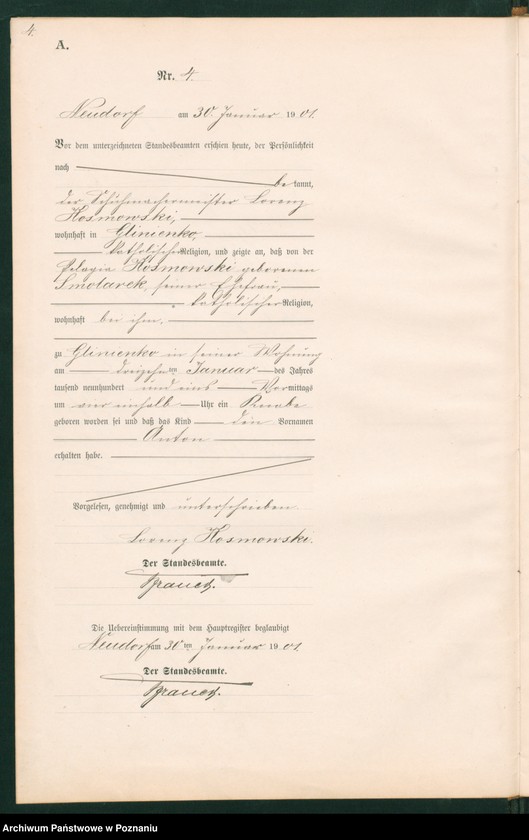 4.
A.
Nr. 4
Neudorf am 30. Januar 1901.
Vor dem unterzeichneten Standesbeamten erschien heute, der Persönlichkeit
nach
bekannt,
der Schuhmachermeister Lorenz
Kosmowski,
wohnhaft in Glinienko,
katholischer Religion, und zeigte an, daß von der
Pelagia Kosmowski geborenen
Smolarek, seiner Ehefrau,
katholischer Religion,
wohnhaft bei ihm,
zu Glinienko in seiner Wohnung
am dreizehnten Januar des Jahres
tausend neunhundert und eins Vormittags
um vier einhalb Uhr ein Knabe
geboren worden sei und daß das Kind den Vornamen
Anton
erhalten habe.
Vorgelesen, genehmigt und unterschrieben
Lorenz Kosmowski.
Der Standesbeamte.
Die Uebereinstimmung mit dem Hauptregister beglaubigt
Neudorf am 30ten Januar 1901
Der Standesbeamte.
Archiwum Państwowe w Poznaniu